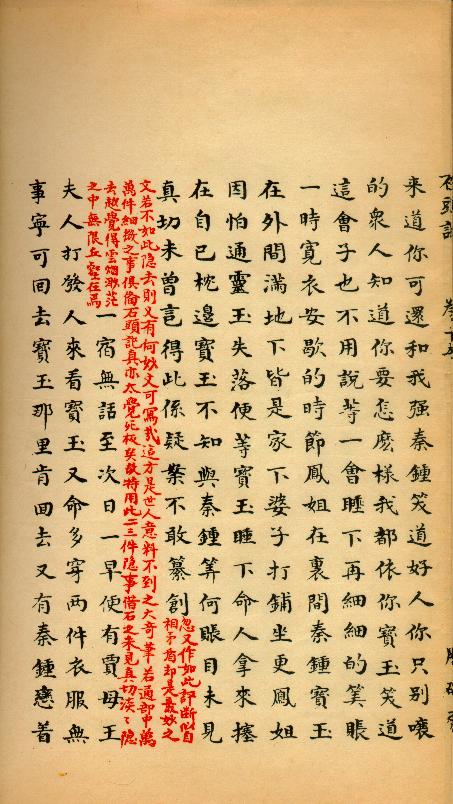 石頭記 卷十五 脂硯齋
来道你可還和我强秦鍾笑道好人你只别嚷
的衆人知道你要怎麽樣我都依你寶玉笑道
這會子也不用說等一會睡下再細細的筭賬
一時寬衣安歇的時節鳳姐在裏間秦鍾寶玉
在外間滿地下皆是家下婆子打鋪坐更鳳姐
因怕通靈玉失落便等寶玉睡下命人拿來
在自已枕邊寶玉不知與秦鍾筭何賬目未見
真切未曽記得此係疑案不敢纂創
忽又作如此評斷似自
相矛盾却是最妙之
文若不如此隐去則又有何妙文可寫哉這方是世人意料不到之大奇筆若通部中萬
萬件細微之事俱俻石頭記真亦太覺死板矣故特用此二三件隐事借石之未見真切淡〻隐
去越覺得雲烟渺茫
之中無限丘壑在焉
一宿無話至次日一早便有賈母王
夫人打發人來看寶玉又命多穿兩件衣服無
事寧可回去寶玉那里肯回去又有秦鍾戀着